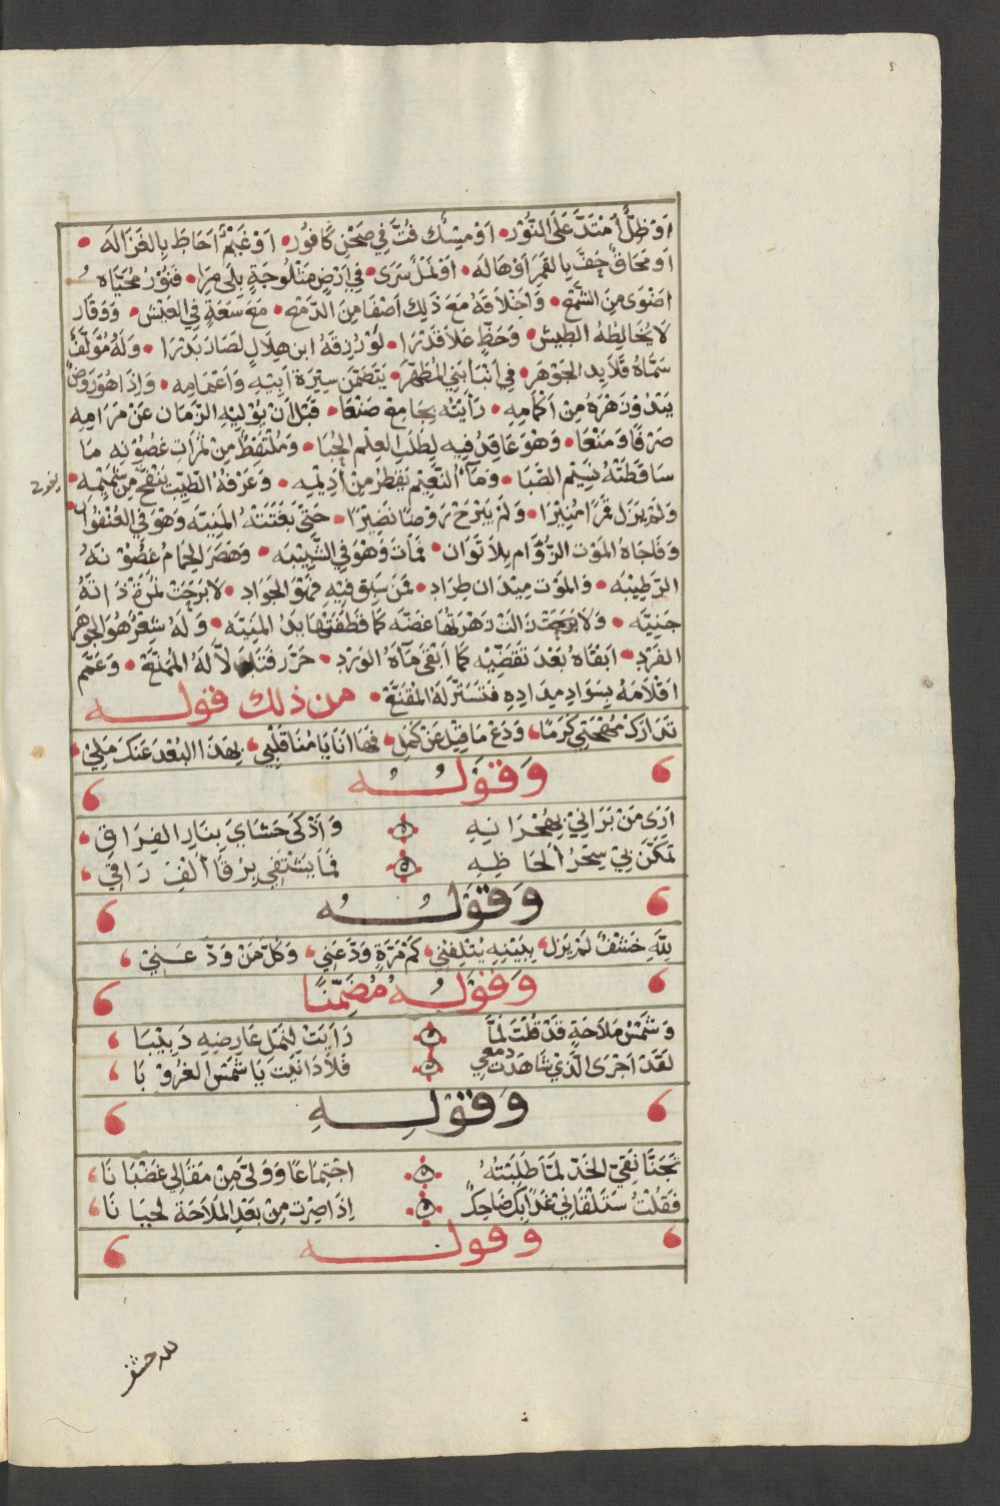 اَوْ ظِلٌّ اُمْتَدَّ عَلَى النُّوْر • اَوْ مِسْك فُتَّ فِي صَحْنِ كَافُوْر • اَوْ غَيْمٌ اَحَاطَ بِالغَزَالَه •
اَو مُحَاقٌ حِفَّ بِالقَمَرِ اَوْ هَالَه • اَوْ نَمْلٌ سَرَى • فِي اَرْضٍ مَثْلُوجَةٍ بِلَى مِرَا • فَنُوْرُ مُحَيَّاهُ
اَضْوَى مِنَ الشَّمْعِ • وَاَخْلَاقُهُ مَعَ ذَلِكَ اَصْفَا مِنَ الدَّمْعِ • مَعَ سَعَةٍ فِي العَيْش • وَوَقَار
لَا يُخَالِطُهُ الطَيْش • وَحَظٍّ عَلَا قَدْرَا • لَوْ رُزِقَهُ ابن هِلَالٍ لَصَارَ بَدْرَا • وَلَهُ مُؤَلَّفٌ
سَمَّاهُ قَلَايِد الجَوْهَر • فِي اَنْبَاءِ بَنِي المُطَهَّر • يَتَضَمَّن سِيْرَة اَبِيْهِ وَاَعْمَامِه • وَاِذَا هُوَ رَوْضٌ
يَبْدُو زَهْرَهُ مِنْ اَكْمَامِهِ • رَاَيْتُه بِجَامِعْ صَنْعَا • قَبْلَ اَنْ يُوْلِيْهِ الزَّمَان عَنْ مَرَامِهِ
صَرْفًا وَمَنْعَا • وَهْوَ عَاقِدٌ فِيهِ لِطَلَبِ العِلْمِ الحُبَا • وَمُلْتَقِطٌ مِنْ ثَمَرَات غُصُوْنِهِ مَا
سَاقَطَتْهُ نَسِيْم الصَّبَا • وَمَآءُ النَّعِيْم يَقْطُر مِنْ اَدِيْمِه • وَعَرْفُهُ الطَيِّب يَنْفَحُ مِنْ شَمِيْمِه •
وَلَمْ يَزَل قَمَرًا مُنِيْرَا • وَلَمْ يَبْرَحْ رَوْضًا نَضِيْرَا • حَتَّى بَغَتَتْهُ المَنِيَّه وَهْوَ فِي العُنْفُوَان •
وَفَاجَاهُ المَوْت الزُّؤَام بِلَا تَوَان • فَمَاتَ وَهْوَ فِي الشَّبِيْبَه • وَهَصَرَ الحِمَامُ غُصُوْنَهُ
الرَّطِيْبَه • وَالمَوْت مِيْدَان طِرَاد • فَمَنْ سَبَقَ فِيْهِ فَهْوَ الجَوَاد • لَا بَرِحَتْ ثَمَرَة ذَاتِهُ
جَنِيَّه • وَلَا بَرِحَتْ زَالَتْ زَهْرَتُهَا غَضَّه كَمَا قَطَفَتْهَا يَدُ المَنِيَّه • وَلَهُ شِعْرٌ هُوَ الجَوْهَر
الفَرْد • اَبْقَاهُ بَعْدَ تَقَضِّيْه كَمَا اَبْقَى مَآءَهُ الوَرْد • حَرَّرَ فَتَذَلَّلَ لَهُ المُمَنَّعْ • وَعَمَّم
اَقْلَامَهُ بِسَوَادِ مِدَادِهِ فَتَسَتَّرَ لَهُ المُقَنَّعْ • من ذلك قوله
تَدَارَكْ مُهْجَتِي كَرَمًا، وَدَعْ مَا قِيْلَ عَنْ كَمَلِ، فَهَا اَنَا يَا مُنَا قَلْبِي، بِهَذَا البُعْدِ عَنْكَ مَلِيْ،
وَقَوْلُهُ
اَرَى مَنْ بَرَانِيْ بِهِجْرَانِهِ وَاَذْكَى حَشَايَ بِنَارِ الفِرَاقِ،
تَمَكَّنَ بِيْ سِحْرُ اَلْحَاظِهِ فَمَا يَشْتَفِي بِرُقَا اَلْفِ رَاقِي،
وَقَوْلُهُ
لِلَّهِ خَشْفٌ لَمْ يَزَل، بِبَيْنِهِ يُتْلِفُنِي، كَمْ مَرَّةٍ وَدَّعَنِي، وَكُلُّ مَنْ وَدَّ عَنِيْ،
وَقَوْلُهُ مُضَمِّنًا
وَشَمْسُ مَلَاحَةٍ قَدْ قُلْتُ لَمَّا رَاَيْتُ لِنَمْلِ عَارِضِهِ دَبِيْبَا،
لَقَدْ اَجْرَى الَّذِيْ شَاهَدْتُ دمعي فَلَا دَانَيْتَ يَا شَمْسُ الغُرُوْبَا،
وَقَوْلِهِ
تَجَنَّا نَقِيّ الخَدّ لَمَّا طَلَبْتُهُ اجْتِمَاعًا وَوَلَّى مِنْ مَقَالِي غَضْبَانَا،
فَقُلْتُ سَتَلْقَانِيْ غَدًا بِكَ ضَاحِكٌ اِذَا صِرْتَ مِنْ بَعْدِ المَلَاحَة لِحْيَانَا،
وقوله
لله خشف